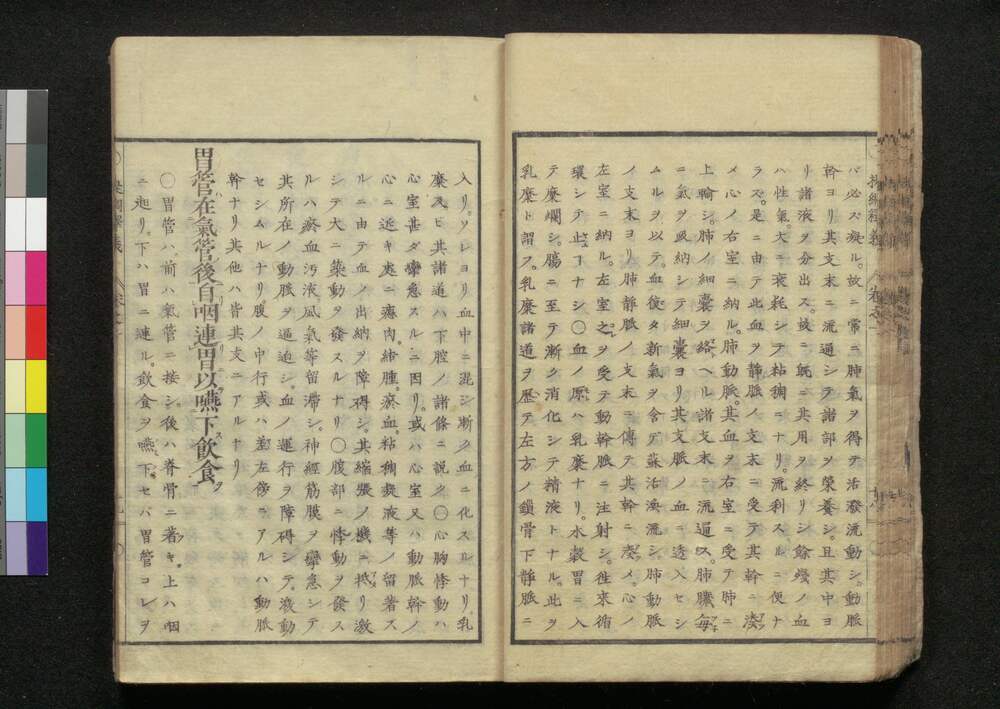 バ必ス凝ル。故ニ常ニ肺氣ヲ得テ活潑流動シ。動脈
幹ヨリ其支末ニ流通シテ諸部ヲ榮養シ。且其中ヨ
リ諸液ヲ分出ス。玆ニ既ニ其用ヲ終リシ餘殘ノ血
ハ性氣。大ニ衰耗シテ粘稠ニナリ。流利スルニ便ナ
ラズ。是ニ由テ此血ヲ靜脈ノ支末ニ受テ其幹ニ湊
メ心ノ右室ニ納ル。肺動脈。其血ヲ右室ニ受テ肺ニ
上輸シ。肺ノ細囊ヲ絡ヘル諸支末ニ流通ス。肺臟毎
ニ氣ヲ吸納シテ細囊ヨリ其支脈ノ血ニ透入セシ
ムルヲ以テ。血復タ新氣ヲ含テ蘇活渙流シ。肺動脈
ノ支末ヨリ肺靜脈ノ支末ニ傳テ其幹ニ湊メ。心ノ
左室ニ納ル。左室之ヲ受テ動幹脈ニ注射シ。徃來循
環シテ止ナシ〇血ノ原ハ乳糜ナリ。水穀胃ニ入
テ糜爛シ。膓ニ至テ漸ク消化シテ精液トナル。此ヲ
乳糜ト謂フ。乳糜諸道ヲ歷テ左方ノ鎖骨下靜脈ニ
入リ。ソレヨリ血中ニ混シ漸ク血ニ化スルナリ。乳
糜及ヒ其諸道ハ下腔ノ諸條ニ説ク〇心胸悸動ハ
心室甚タ攣急スルニ因リ。或ハ心室又ハ動脈幹ノ
心ニ近キ處ニ瘜肉。結腫。瘀血。粘稠凝液等ノ留着ス
ルニ由テ血ノ出納ヲ障碍シ。其縮張ノ機ニ抵リ激
シテ大ニ築動ヲ發スルナリ〇腹部ニ悸動ヲ發ス
ルハ瘀血汚液。風氣等留滯シ。神經筋膜ヲ攣急シテ
其所在ノ動脈ヲ逼迫シ。血ノ運行ヲ障碍シテ。激動
セシムルナリ。腹ノ中行或ハ差左傍ニアルハ動脈
幹ナリ其他ハ皆其支ニアルナリ
胃管在氣管後自咽連胃以嚥下飲食
〇胃管ハ。前ハ氣管ニ接シ後ハ脊骨ニ着キ。上ハ咽
ニ起リ。下ハ胃ニ連ル。飲食ヲ嚥下セバ胃管コレヲ